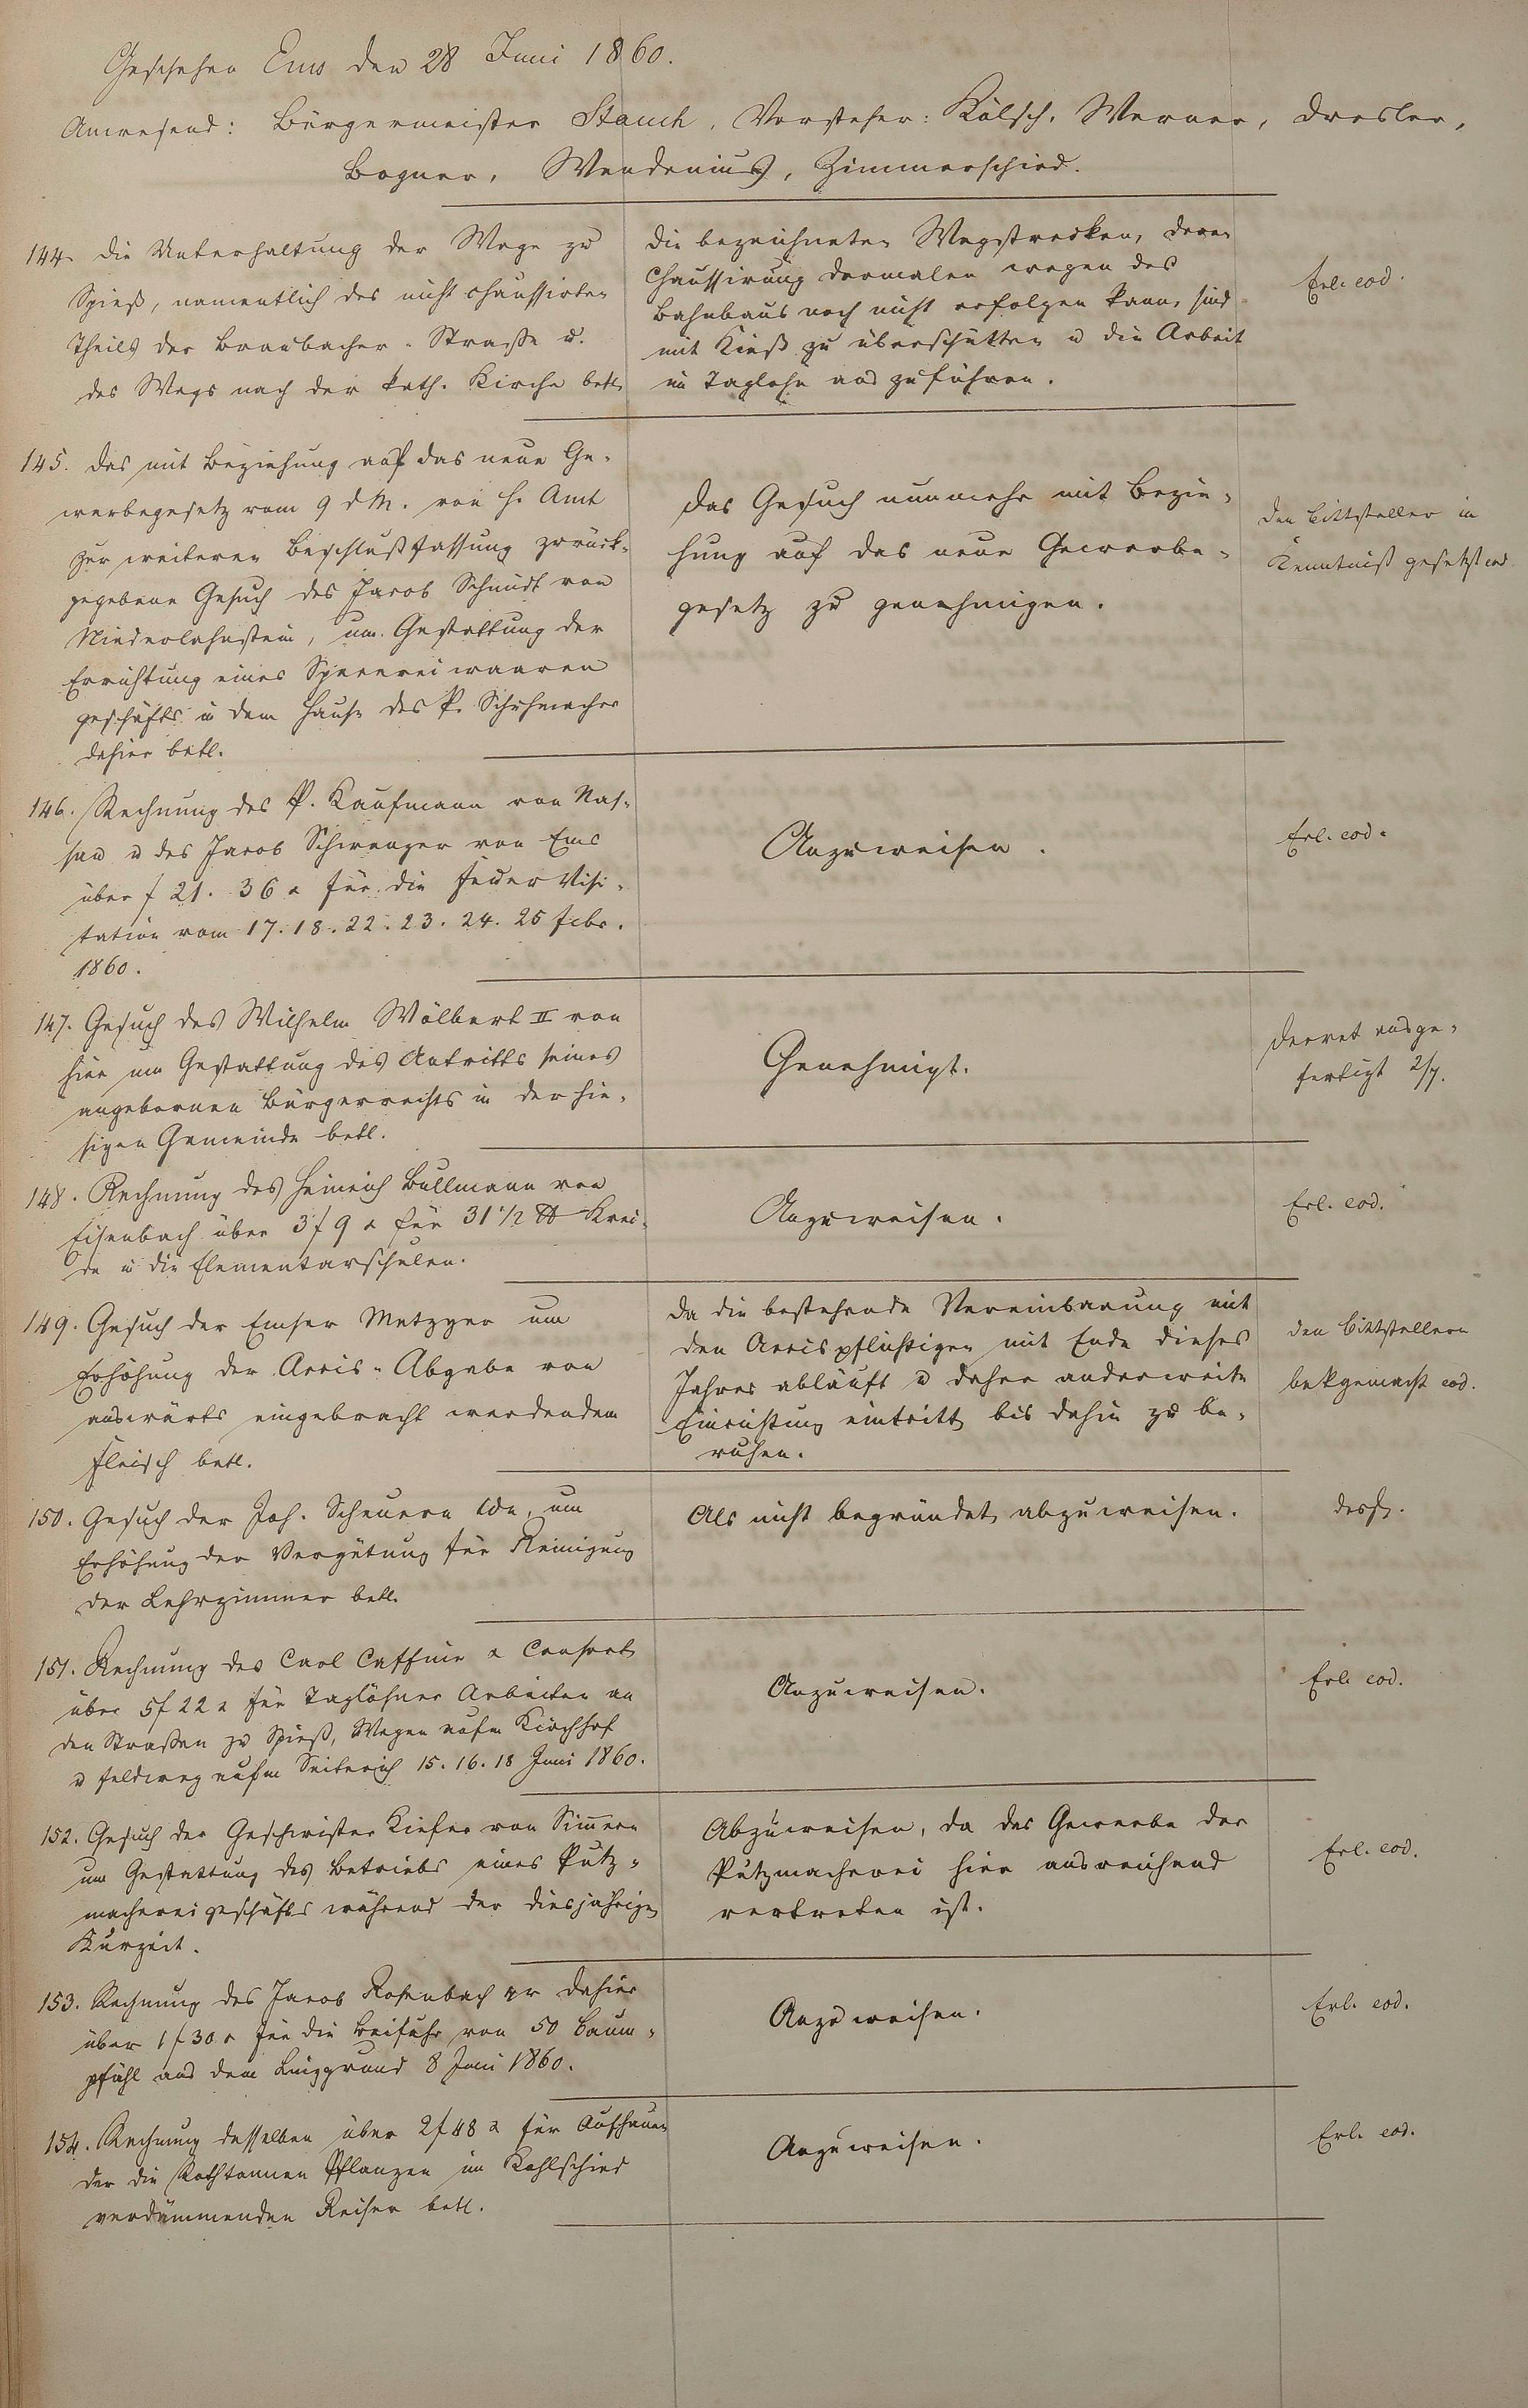 Geschehen Ems den 28 Juni 1860.
Anwesend: Bürgermeister Stauch, Vorsteher: Kölsch, Werner, Dresler,
Bogner, Wendenius, Zimmerschied.
144. Die Unterhaltung der Wege zu
Spieß, namentlich des nicht chaussirten
Theils der Braubacher-Straße u.
des Wegs nach der kath. Kirche betl.
Die bezeichneten Wegstrecken, deren
Chaussirung dermalen wegen des
Bahnbaus noch nicht erfolgen kann, sind
mit Kieß zu überschütten u die Arbeit
im Taglohn auszuführen.
Erl. eod.
145. Das mit Beziehung auf das neue Ge-
werbegesetz vom 9 d M. von H. Amt
zur weiteren Beschlußfassung zurück-
gegebene Gesuch des Jacob Schmidt von
Niederlahnstein, um Gestattung der
Errichtung eines Spezereiwaaren
geschäfts in dem Hause des P. Schuhmacher
dahier betl.
Das Gesuch nunmehr mit Bezie-
hung auf das neue Gewerbe-
gesetz zu genehmigen.
Den Bittsteller in
Kenntniß gesetzt eod.
146. Rechnung des P. Kaufmann von Nas-
sau u des Jacob Schwenzer von Ems
über f 21. 36 x für die Feuer Visi-
tation vom 17. 18. 22. 23. 24. 25 Febr.
1860.
Anzuweisen.
Erl. eod.
147. Gesuch des Wilhelm Wölbert II von
hier um Gestattung des Antritts seines
angebornen Bürgerrechts in der hie-
sigen Gemeinde betl.
Genehmigt.
Decret ausge-
fertigt 2/7.
148. Rechnung des Heinrich Bullmann von
Eisenbach über 3 f 9 x für 31 1/2 ℔ Krei-
de in die Elementarschulen.
Anzuweisen.
Erl. eod.
149. Gesuch der Emser Metzger um
Erhöhung der Accis-Abgabe von
auswärts eingebracht werdendem
Fleisch betl.
Da die bestehende Vereinbarung mit
den Accispflichtigen mit Ende dieses
Jahres abläuft u daher anderweite
Einrichtung eintritt, bis dahin zu be-
ruhen.
Den Bittstellern
bekgemacht eod.
150. Gesuch der Joh. Scheuern Wwe, um
Erhöhung der Vergütung für Reinigung
der Lehrzimmer betl.
Als nicht begründet abzuweisen.
desgl.
151. Rechnung des Carl Caffine & Consort
über 5 f 22 x für Taglöhner Arbeiten an
den Straßen zu Spieß, Wegen aufm Kirchhof
u Feldweg aufm 15. 16. 18 Juni 1860.
Anzuweisen.
Erl. eod.
152. Gesuch der Geschwister Kiefer von Simmern
um Gestattung des Betriebs eines Putz-
machereigeschäfts während der diesjährigen
Kurzeit.
Abzuweisen, da das Gewerbe der
Putzmacherei hier ausreichend
vertreten ist.
Erl. eod.
153. Rechnung des Jacob Rosenbach dahier
über 1 f 30 x für die Beifuhr von 50 Baum-
pfähl aus dem 8 Juni 1860.
Anzuweisen.
Erl. eod.
154. Rechnung desselben über 2 f 48 x für Aushauen
der die Rothtannen Pflanzen im Kohlschied
verdämmenden Reiser betl.
Anzuweisen.
Erl. eod.